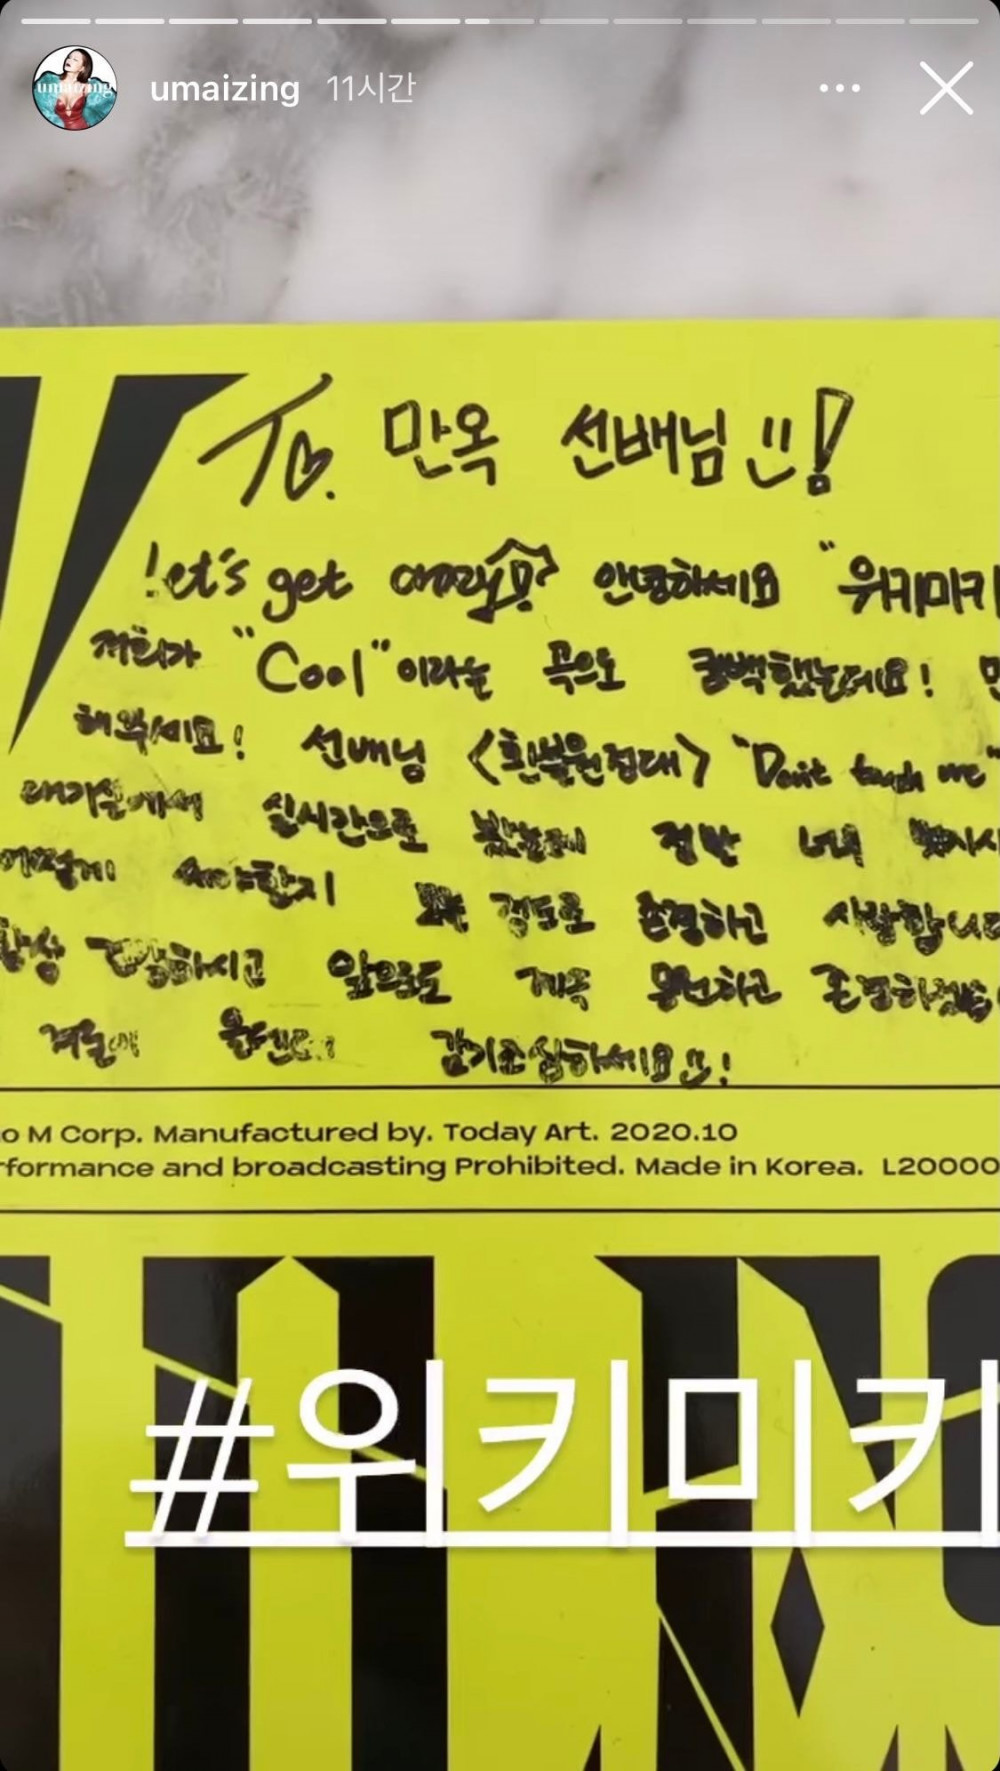 umaizing 11시간
To. 만옥 선배님 !
Let's get crazy! 안녕하세요 "위키미키
저희가 "Cool"이라는 곡으로 컴백했는데요!
해주세요! 선배님 <환불원정대> "Don't touch me"
대기실에서 실시간으로 봤는데 정말 너무
어떻게 해야할지 정도로 존경하고 사랑합니다
항상 건강하시고 앞으로도 계속 응원하고
겨울에 감기조심하세요!
o M Corp. Manufactured by. Today Art. 2020.10
rformance and broadcasting Prohibited. Made in Korea. L20000
#위키미키